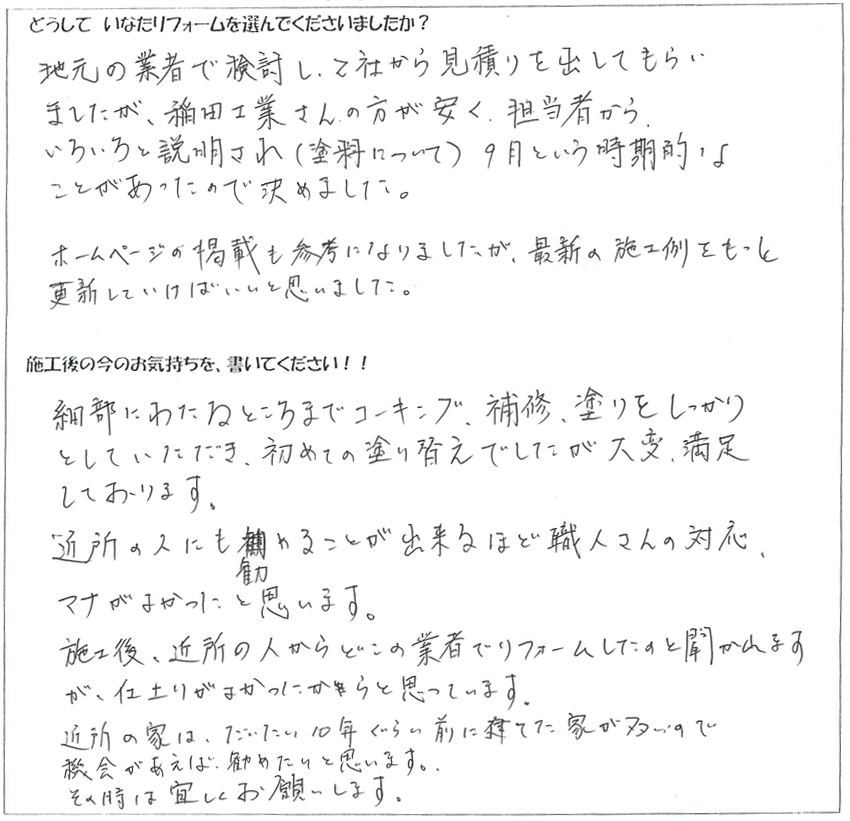 どうして いなたリフォームを選んでくださいましたか？
地元の業者で検討し、2社から見積りを出してもらい
ましたが、稲田工業さんの方が安く、担当者から、
いろいろと説明され(塗料について) 9月という時期的な
ことがあったので決めました。
ホームページの掲載も参考になりましたが、最新の施工例をもっと
更新していけばいいと思いました。
施工後の今のお気持ちを、書いてください！！
細部にわたるところまでコーキング、補修、塗りをしっかり
としていただき、初めての塗り替えでしたが大変、満足
しております。
近所の人にも勧めることが出来るほど職人さんの対応、
マナがよかったと思います。
施工後、近所の人からどこの業者でリフォームしたのと聞かれます
が、仕上りがよかったからと思っています。
近所の家は、だいたい10年ぐらい前に建てた家が多いので
機会があえば、勧めたいと思います。
その時は宜しくお願いします。